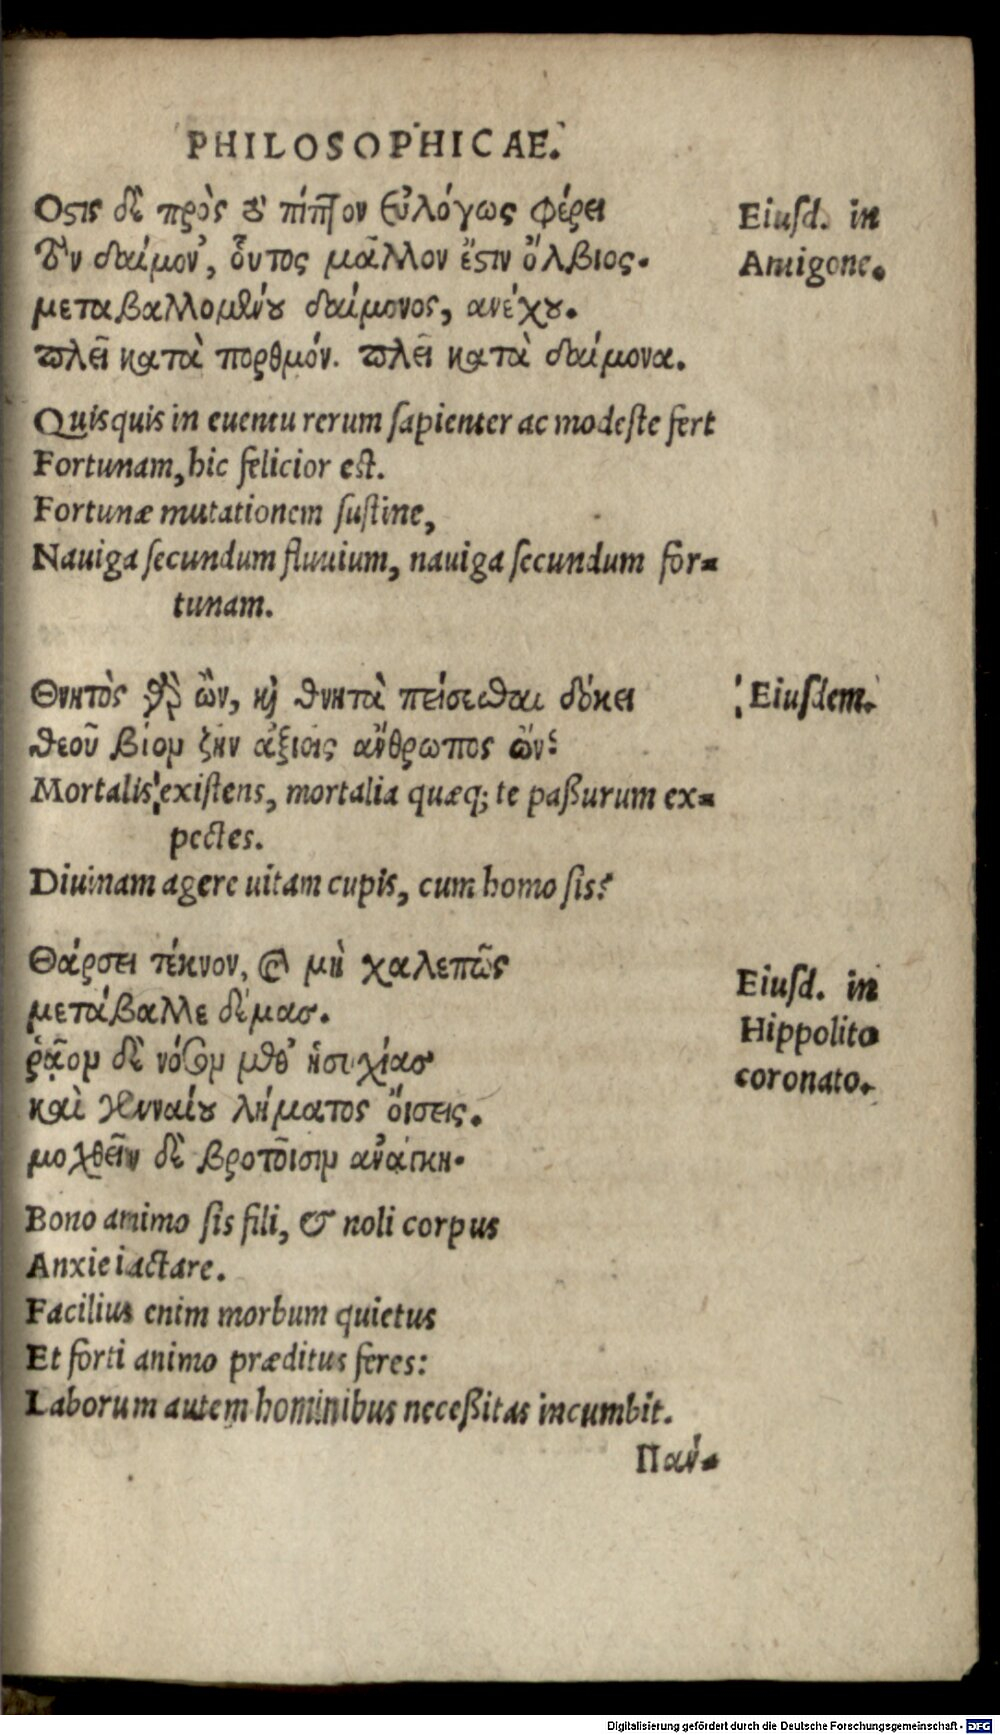 PHILOSOPHICAE.
Οςις δὲ πρὸς ȣ̀ πίπῆον Εὐλόγως φέρει
Τὸν δαίμον', ὅυτος μᾶλλον ἔςιν ὄλβιος.
μεταβαλλομένȣ δαίμονος, ανέχȣ.
πλεῖ κατὰ πορθμόν. πλεῖ κατὰ δαίμονα.
Eiuſd. in
Antigone.
Quisquis in euentu rerum ſapienter ac modeſte fert
Fortunam, hic felicior eſt.
Fortunæ mutationem ſuſtine,
Nauiga ſecundum fluuium, nauiga ſecundum for-
tunam.
Θνητὸς γὰρ ὢν, κỳ θνητὰ πείσεσθαι δόκει
θεοῦ βίον ζῆν ἀξιοῖς ἄνθρωπος ὤν;
Eiuſdem.
Mortalis existens, mortalia quæq; te paßurum ex-
pectes.
Diuinam agere uitam cupis, cum homo ſis?
Θάρσει τέκνον, & μὴ χαλεπῶς
μετάβαλλε δέμας.
ῥᾷον δὲ νόσον μεθ' ἡσυχίας
καὶ γενναίȣ λήματος ὄισεις.
μοχθεῖν δὲ βροτοῖσιν ανάγκη.
Eiuſd. in
Hippolito
coronato.
Bono animo ſis fili, & noli corpus
Anxie iactare.
Facilius enim morbum quietus
Et forti animo præditus feres:
Laborum autem hominibus neceßitas incumbit.
Παν-
Digitalisierung gefördert durch die Deutsche Forschungsgemeinschaft - DFG